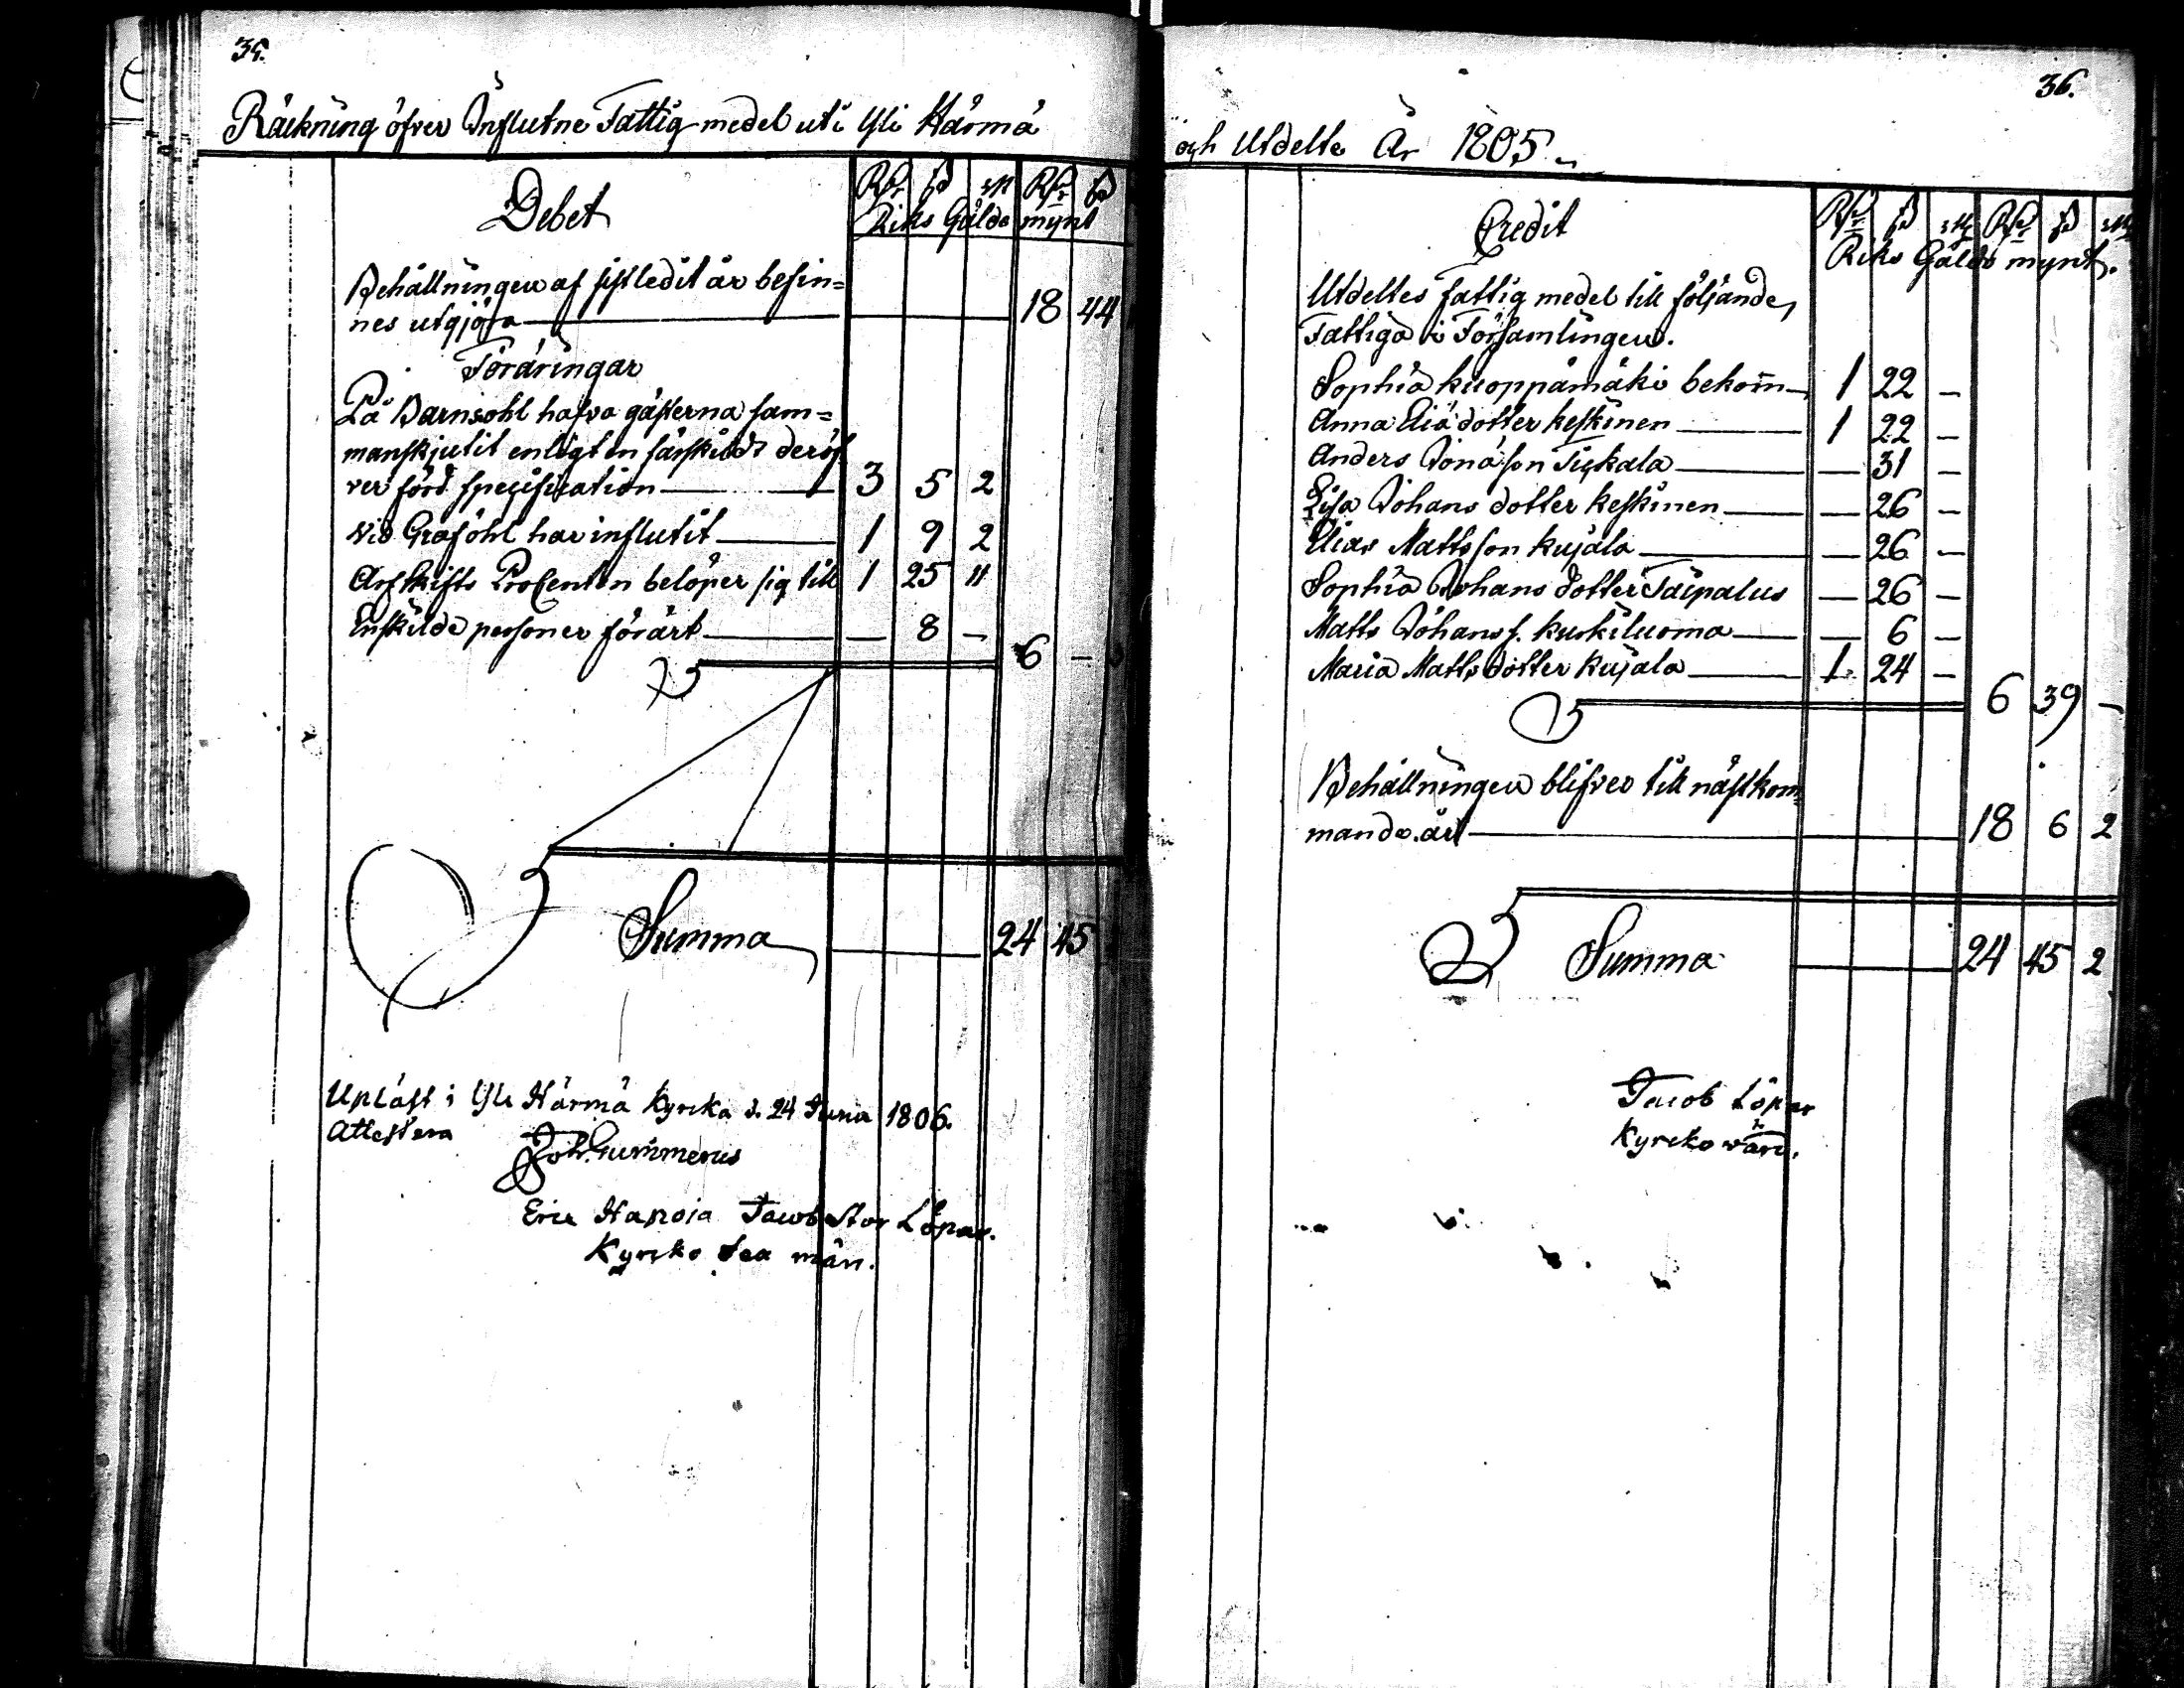 35.
Räckning öfver Influtne Fattig medel uti Yli Härmä
Debet
Rdr ß rst Rdr ß
Riks Gälds mynt
Behållningen af sistledit år befin=
nes utgjöra 18 44
Föräringar
På Barnsöhl hafva gästerna sam=
manskjutit enligt en särskildt deröf
ver förd specification 3 5 2
Vid Graföhl har influtit 1 9 2
Arfskifts Procenten belöper sig till 1 25 11
Enskilde personer förärt — 8 —
6 —
Summa 24 45
Upläst i Yli Härmä Kyrka d. 24 Junii 1806.
Attestera
Joh. Gummerus
Eric Hanoja Jacob Stor Löpar.
Kyrko Sex män.
36.
och Utdelte År 1805
Credit
Rdr ß rst Rdr ß rst
Riks Gälds mynt.
Utdeltes fattig medel till följande
Fattiga i Församlingen.
Sophia Kuoppamäki bekom̅ 1 22 —
Anna Eliä dotter Keskinen 1 22 —
Anders Jonasson — 31 —
Lisa Johans dotter Keskinen — 26 —
Elias Mattsson Kujala — 26 —
Sophia Johans dotter Taipalus — 26 —
Matts Johans s. Kuskiluoma — 6 —
Maria Matts dotter Kujala 1 24 —
6 39 —
Behållningen blifver till nästkom=
mande år 18 6 2
Summa 24 45 2
Jacob Löpar
Kyrko värd.